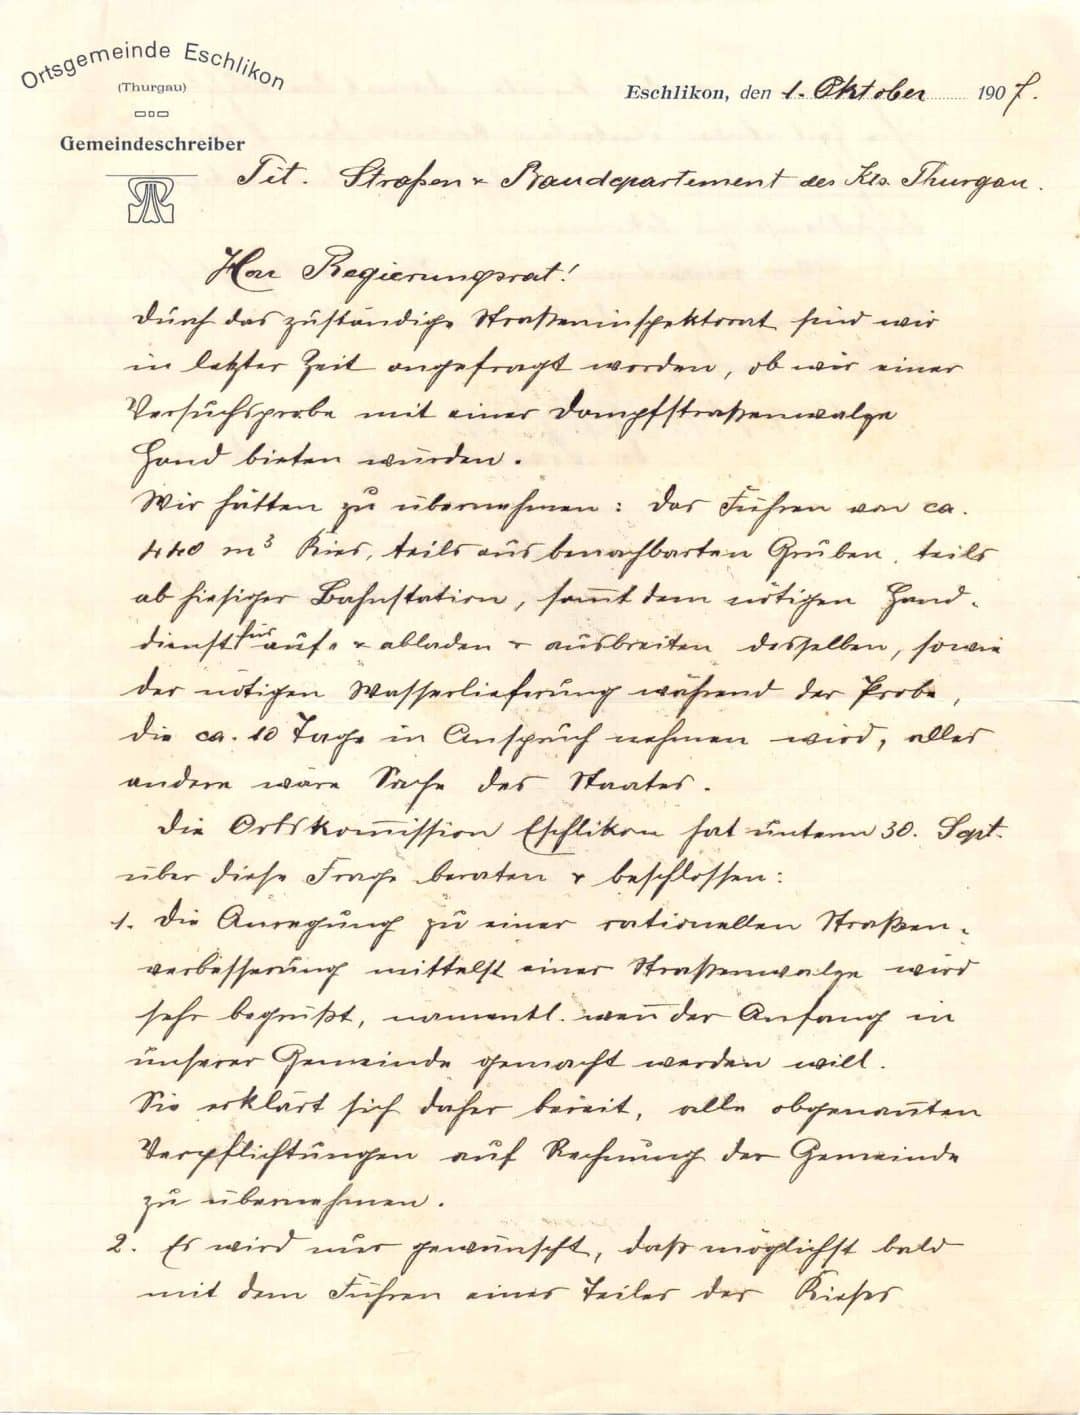 Ortsgemeinde Eschlikon
(Thurgau)
Gemeindeschreiber
Eschlikon, den 1. Oktober 1907.
Tit. Straßen & Baudepartement des Kts. Thurgau.
Herr Regierungsrat!
Durch das zuständige Straßeninspektorat sind wir
in letzter Zeit angefragt worden, ob wir einer
Versuchsprobe mit einer Dampfstraßenwalze
Hand bieten würden.
Wir hätten zu übernehmen: Das Führen von ca.
440 m³ Kies, teils aus benachbarten Gruben, teils
ab hiesiger Bahnstation, sam̅t dem nötigen Hand-
dienst für auf- & abladen & ausbreiten desselben, sowie
der nötigen Wasserlieferung während der Probe,
die ca. 10 Tage in Anspruch nehmen wird, alles
andere wäre Sache des Staates.
Die Ortskom̅ission Eschlikon hat unterm 30. Sept.
über diese Frage beraten & beschlossen:
1. Die Anregung zu einer rationellen Straßen-
verbesserung mittelst einer Straßenwalze wird
sehr begrüßt, namentl. wen̅ der Anfang in
unserer Gemeinde gemacht werden will.
Sie erklärt sich daher bereit, alle obgenan̅ten
Verpflichtungen auf Rechnung der Gemeinde
zu übernehmen.
2. Es wird nur gewünscht, daß möglichst bald
mit dem Führen eines Teiles des Kieses